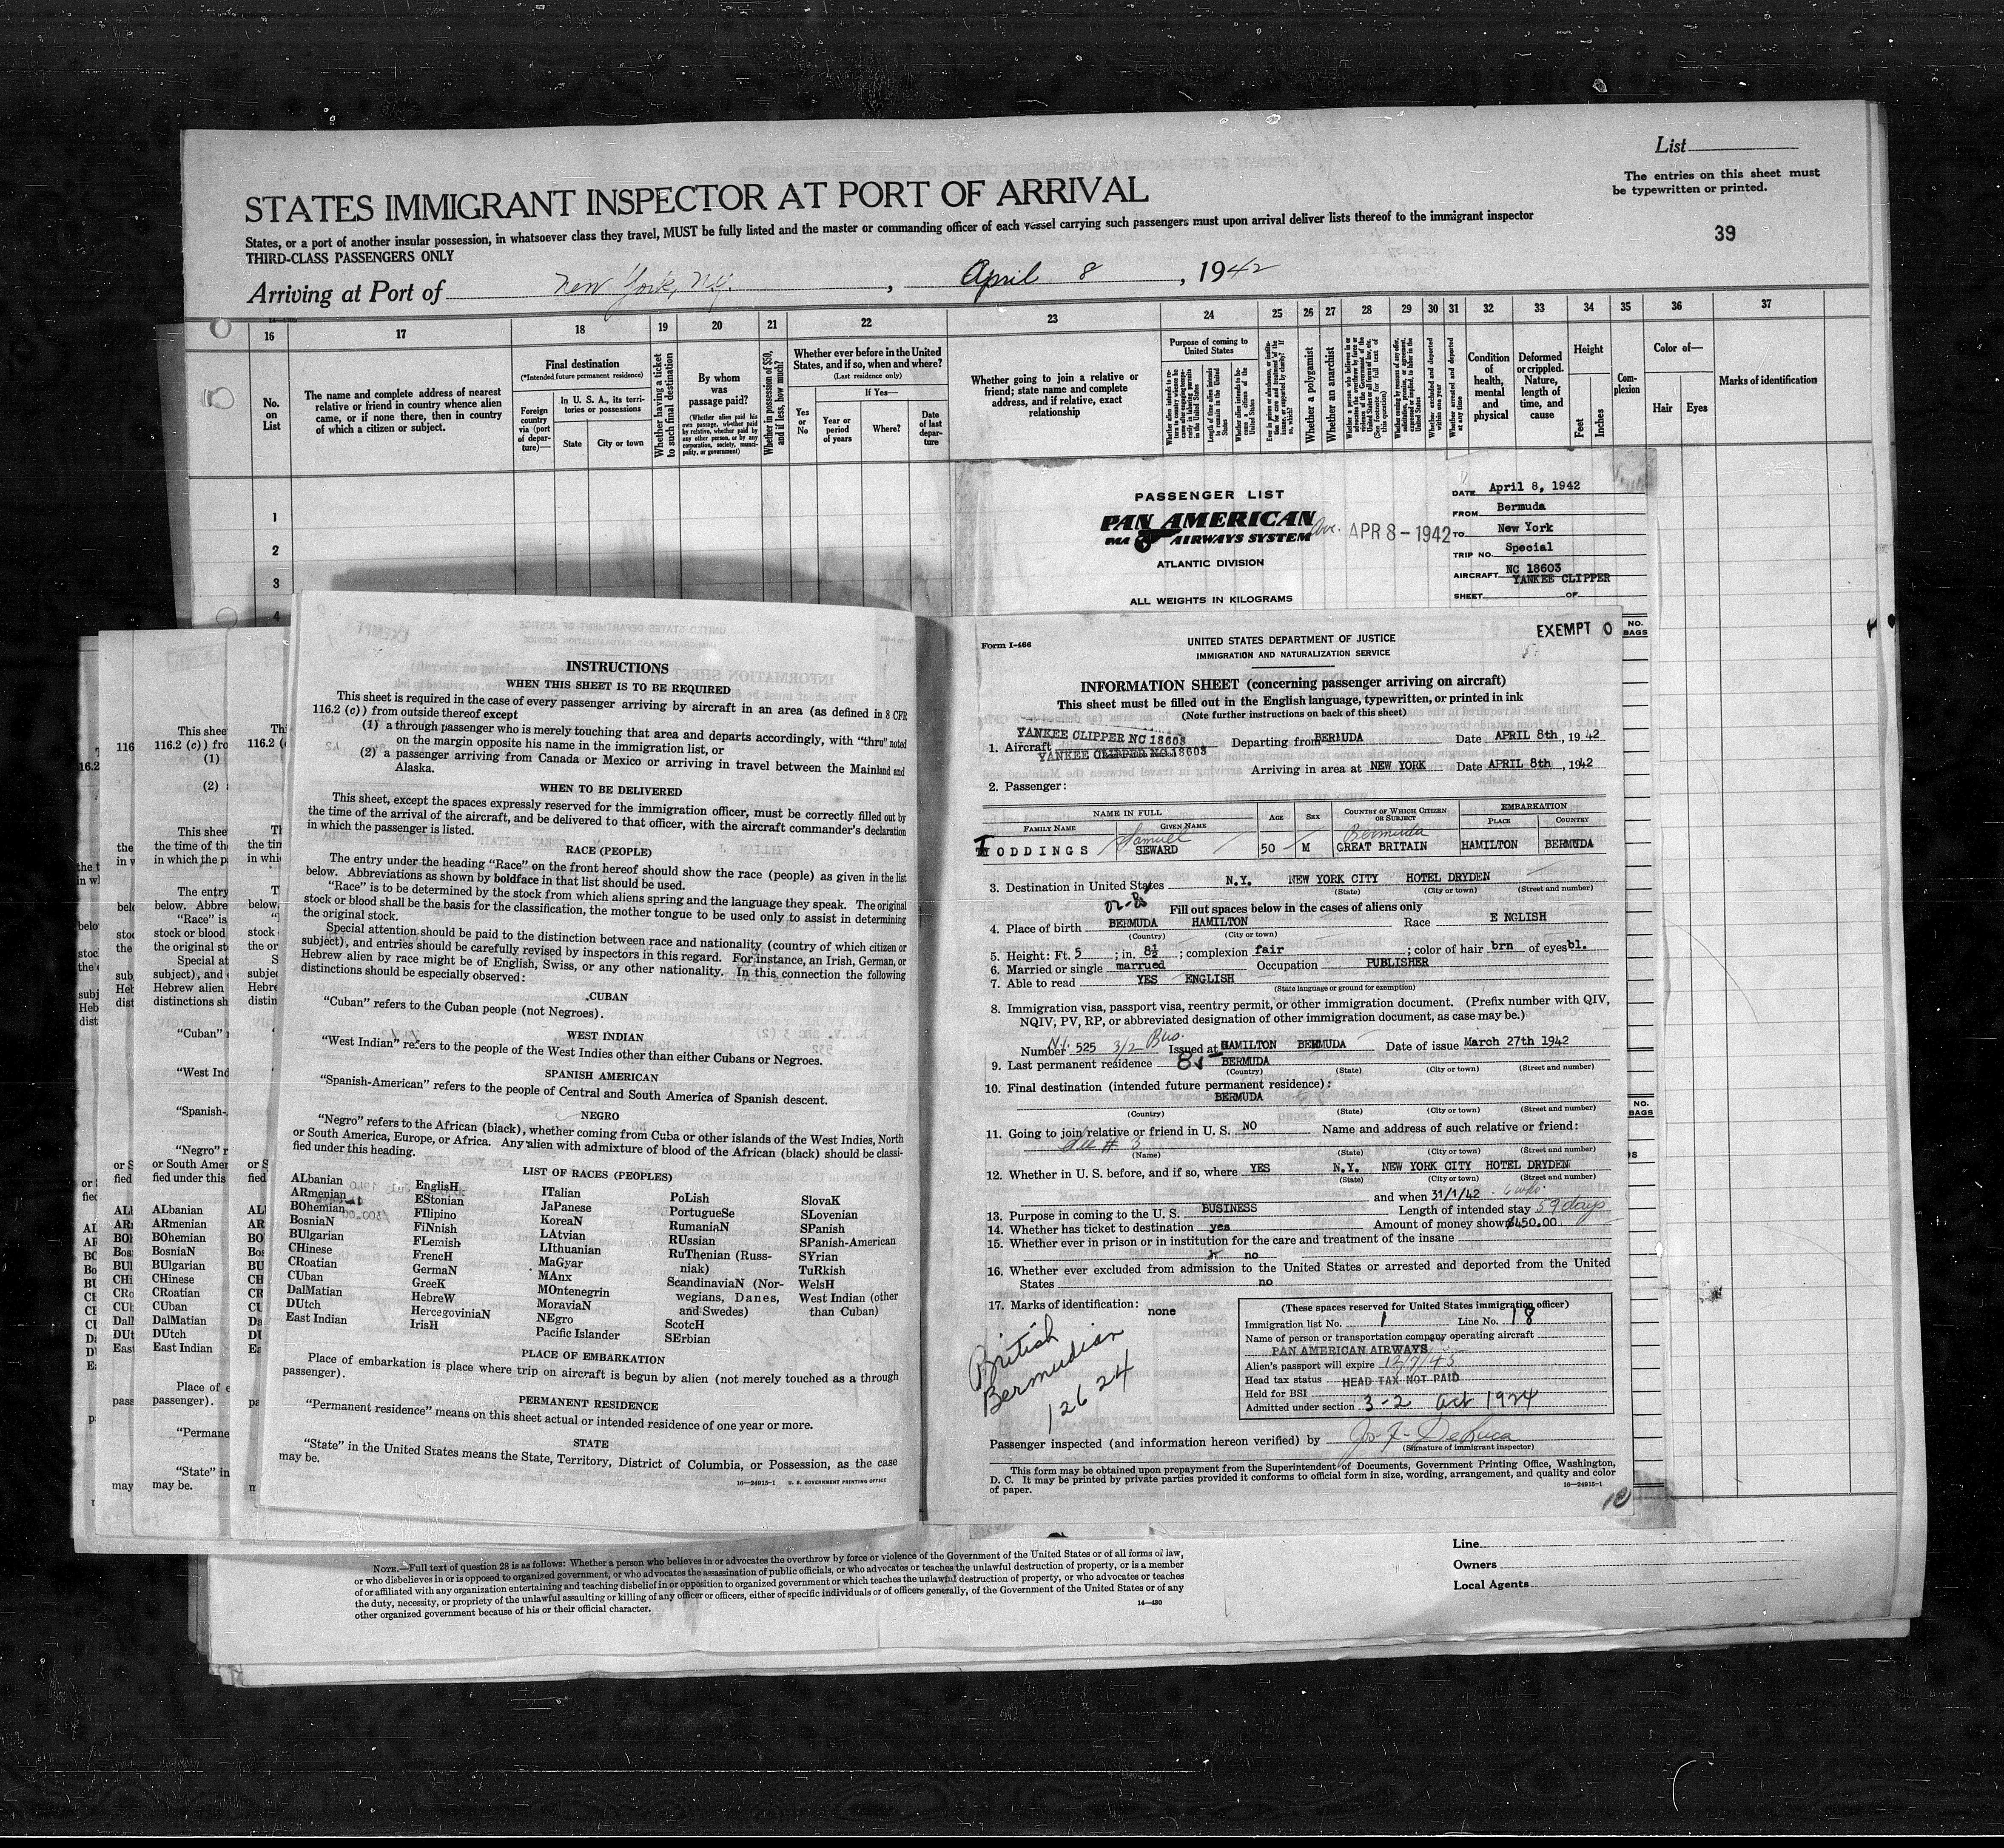 List
The entries on this sheet must
be typewritten or printed.
39
STATES IMMIGRANT INSPECTOR AT PORT OF ARRIVAL
States, or a port of another insular possession, in whatsoever class they travel, MUST be fully listed and the master or commanding officer of each vessel carrying such passengers must upon arrival deliver lists thereof to the immigrant inspector
THIRD-CLASS PASSENGERS ONLY
Arriving at Port of New York, N.Y. , April 8 , 1942
16 17 18 19 20 21 22 23 24 25 26 27 28 29 30 31 32 33 34 35 36 37
No. on List
The name and complete address of nearest
relative or friend in country whence alien
came, or if none there, then in country
of which a citizen or subject.
Final destination
(*Intended future permanent residence)
Foreign country via (port of departure)—
In U. S. A., its territories or possessions
State
City or town
Whether having a ticket to such final destination
By whom was passage paid?
(Whether alien paid his own passage, whether paid by relative, whether paid by any other person, or by any corporation, society, municipality, or government)
Whether in possession of $50, and if less, how much?
Whether ever before in the United
States, and if so, when and where?
(Last residence only)
Yes or No
If Yes—
Year or period of years
Where?
Date of last departure
Whether going to join a relative or
friend; state name and complete
address, and if relative, exact
relationship
Purpose of coming to United States
Whether a polygamist
Whether an anarchist
Condition of health, mental and physical
Deformed or crippled. Nature, length of time, and cause
Height
Feet
Inches
Complexion
Color of—
Hair
Eyes
Marks of identification
1
2
3
4
PASSENGER LIST
PAN AMERICAN
PAA AIRWAYS SYSTEM
ATLANTIC DIVISION
ALL WEIGHTS IN KILOGRAMS
Arr. APR 8 - 1942
DATE April 8, 1942
FROM Bermuda
TO New York
TRIP NO. Special
AIRCRAFT NC 18603
YANKEE CLIPPER
SHEET OF
NO. BAGS
NO. BAGS
INSTRUCTIONS
WHEN THIS SHEET IS TO BE REQUIRED
This sheet is required in the case of every passenger arriving by aircraft in an area (as defined in 8 CFR
116.2 (c)) from outside thereof except
(1) a through passenger who is merely touching that area and departs accordingly, with "thru" noted
on the margin opposite his name in the immigration list, or
(2) a passenger arriving from Canada or Mexico or arriving in travel between the Mainland and
Alaska.
WHEN TO BE DELIVERED
This sheet, except the spaces expressly reserved for the immigration officer, must be correctly filled out by
the time of the arrival of the aircraft, and be delivered to that officer, with the aircraft commander's declaration
in which the passenger is listed.
RACE (PEOPLE)
The entry under the heading "Race" on the front hereof should show the race (people) as given in the list
below. Abbreviations as shown by boldface in that list should be used.
"Race" is to be determined by the stock from which aliens spring and the language they speak. The original
stock or blood shall be the basis for the classification, the mother tongue to be used only to assist in determining
the original stock.
Special attention should be paid to the distinction between race and nationality (country of which citizen or
subject), and entries should be carefully revised by inspectors in this regard. For instance, an Irish, German, or
Hebrew alien by race might be of English, Swiss, or any other nationality. In this connection the following
distinctions should be especially observed:
CUBAN
"Cuban" refers to the Cuban people (not Negroes).
WEST INDIAN
"West Indian" refers to the people of the West Indies other than either Cubans or Negroes.
SPANISH AMERICAN
"Spanish-American" refers to the people of Central and South America of Spanish descent.
NEGRO
"Negro" refers to the African (black), whether coming from Cuba or other islands of the West Indies, North
or South America, Europe, or Africa. Any alien with admixture of blood of the African (black) should be classi-
fied under this heading.
LIST OF RACES (PEOPLES)
ALbanian
ARmenian
BOhemian
BosniaN
BUlgarian
CHinese
CRoatian
CUban
DalMatian
DUtch
East Indian
EnglisH
EStonian
FIlipino
FiNnish
FLemish
FrencH
GermaN
GreeK
HebreW
HercegoviniaN
IrisH
ITalian
JaPanese
KoreaN
LAtvian
LIthuanian
MaGyar
MAnx
MOntenegrin
MoraviaN
NEgro
Pacific Islander
PoLish
PortugueSe
RumaniaN
RUssian
RuThenian (Russ-
niak)
ScandinaviaN (Nor-
wegians, Danes,
and Swedes)
ScotcH
SErbian
SlovaK
SLovenian
SPanish
SPanish-American
SYrian
TuRkish
WelsH
West Indian (other
than Cuban)
PLACE OF EMBARKATION
Place of embarkation is place where trip on aircraft is begun by alien (not merely touched as a through
passenger).
PERMANENT RESIDENCE
"Permanent residence" means on this sheet actual or intended residence of one year or more.
STATE
"State" in the United States means the State, Territory, District of Columbia, or Possession, as the case
may be.
16—24915-1 U. S. GOVERNMENT PRINTING OFFICE
Form I-466
UNITED STATES DEPARTMENT OF JUSTICE
IMMIGRATION AND NATURALIZATION SERVICE
EXEMPT 0
INFORMATION SHEET (concerning passenger arriving on aircraft)
This sheet must be filled out in the English language, typewritten, or printed in ink
(Note further instructions on back of this sheet)
YANKEE CLIPPER NC 18603
1. Aircraft YANKEE CLIPPER NC 18603 Departing from BERMUDA Date APRIL 8th, 1942
Arriving in area at NEW YORK Date APRIL 8th, 1942
2. Passenger:
NAME IN FULL
FAMILY NAME GIVEN NAME AGE SEX COUNTRY OF WHICH CITIZEN OR SUBJECT EMBARKATION PLACE COUNTRY
Samuel Bermuda
TODDINGS SEWARD 50 M GREAT BRITAIN HAMILTON BERMUDA
3. Destination in United States N.Y. NEW YORK CITY HOTEL DRYDEN
(State) (City or town) (Street and number)
Fill out spaces below in the cases of aliens only
4. Place of birth BERMUDA HAMILTON Race ENGLISH
(Country) (City or town)
5. Height: Ft. 5 ; in. 8½ ; complexion fair ; color of hair brn of eyes bl.
6. Married or single marrued Occupation PUBLISHER
7. Able to read YES ENGLISH
(State language or ground for exemption)
8. Immigration visa, passport visa, reentry permit, or other immigration document. (Prefix number with QIV,
NQIV, PV, RP, or abbreviated designation of other immigration document, as case may be.)
Number 525 3/2 Bus. Issued at HAMILTON BERMUDA Date of issue March 27th 1942
9. Last permanent residence BERMUDA
(Country) (State) (City or town) (Street and number)
10. Final destination (intended future permanent residence):
BERMUDA
(Country) (State) (City or town) (Street and number)
11. Going to join relative or friend in U. S. NO Name and address of such relative or friend:
See # 3
(Name) (State) (City or town) (Street and number)
12. Whether in U. S. before, and if so, where YES N.Y. NEW YORK CITY HOTEL DRYDEN
(State) (City or town) (Street and number)
and when 31/1/42
13. Purpose in coming to the U. S. BUSINESS Length of intended stay 59 days
14. Whether has ticket to destination yes Amount of money shown $450.00
15. Whether ever in prison or in institution for the care and treatment of the insane
no
16. Whether ever excluded from admission to the United States or arrested and deported from the United
States no
17. Marks of identification: none
British
Bermudian
12624
(These spaces reserved for United States immigration officer)
Immigration list No. 1 Line No. 18
Name of person or transportation company operating aircraft
PAN AMERICAN AIRWAYS
Alien's passport will expire 12/7/45
Head tax status HEAD TAX NOT PAID
Held for BSI
Admitted under section 3-2 Oct 1924
Passenger inspected (and information hereon verified) by Jo. F. DeLuca
(Signature of immigrant inspector)
This form may be obtained upon prepayment from the Superintendent of Documents, Government Printing Office, Washington,
D. C. It may be printed by private parties provided it conforms to official form in size, wording, arrangement, and quality and color
of paper.
16—24915-1
NOTE.—Full text of question 28 is as follows: Whether a person who believes in or advocates the overthrow by force or violence of the Government of the United States or of all forms of law,
or who disbelieves in or is opposed to organized government, or who advocates the assassination of public officials, or who advocates or teaches the unlawful destruction of property, or is a member
of or affiliated with any organization entertaining and teaching disbelief in or opposition to organized government or which teaches the unlawful destruction of property, or who advocates or teaches
the duty, necessity, or propriety of the unlawful assaulting or killing of any officer or officers, either of specific individuals or of officers generally, of the Government of the United States or of any
other organized government because of his or their official character.
14—430
Line
Owners
Local Agents